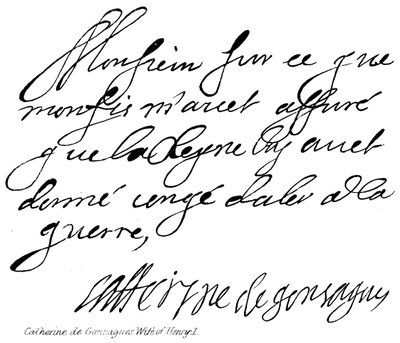 Monsieur sur ce que
mon fis m'avet assuré
que la Reyne luy avet
donné congé daler a la
guerre,
Catteryne de gonsagues
Catherine de Gonzagues Wife of Henry I.